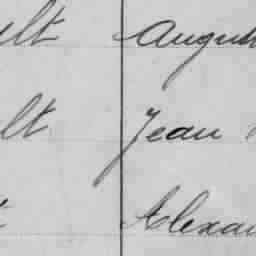 ult August
lt Jean
t Alexan